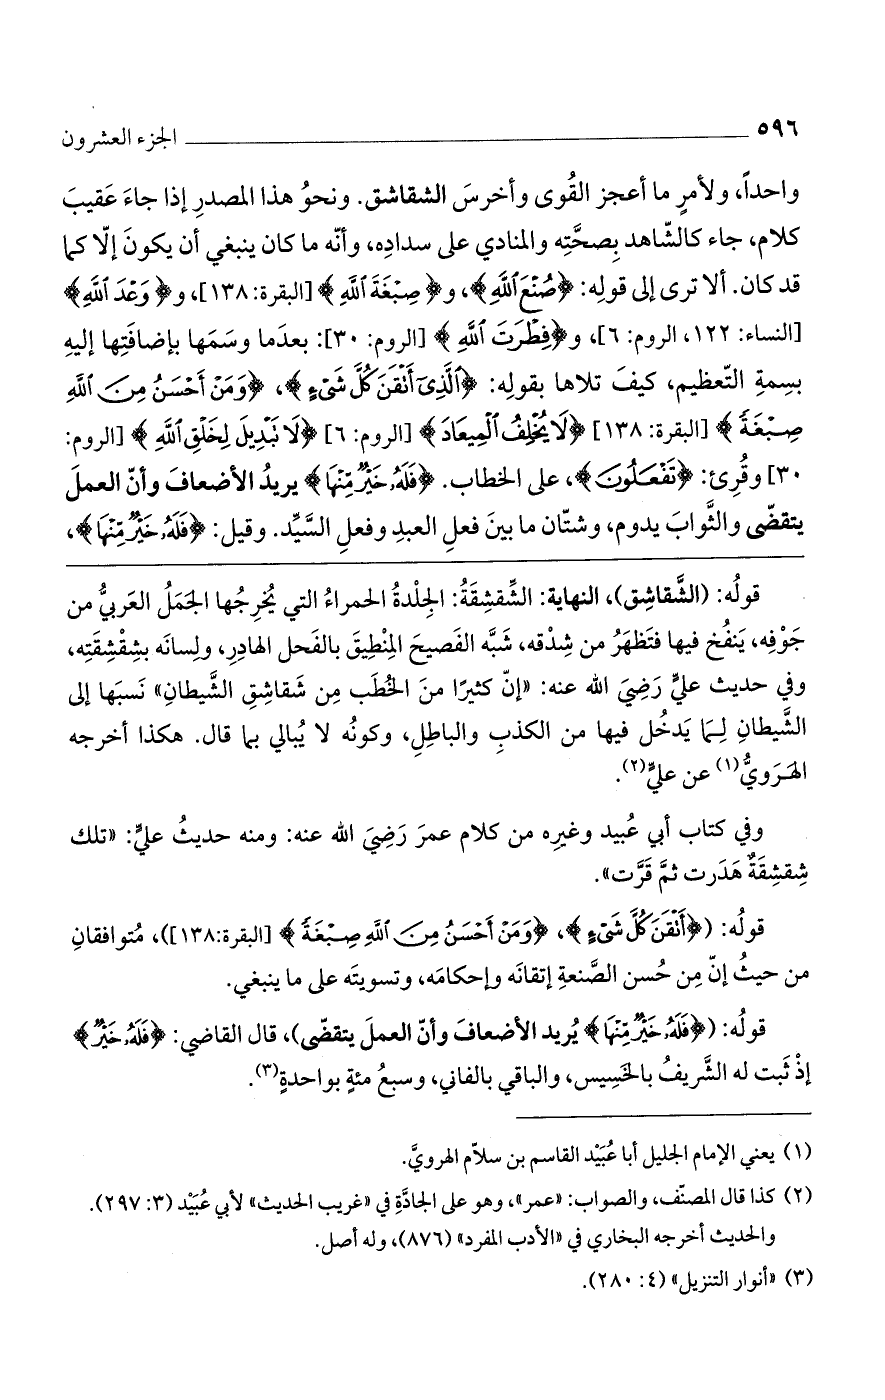 ٥٩٦ الجزء العشرون
واحداً، ولأمرٍ ما أعجز القُوى وأخرسَ الشقاشق. ونحوُ هذا المصدرِ إذا جاءَ عَقيبَ
كلام، جاء كالشّاهد بِصحَّتِه والمنادي على سدادِه، وأنّه ما كان ينبغي أن يكونَ إلّا كما
قد كان. ألا ترى إلى قولِه: ﴿صُنْعَ ٱللَّهِ﴾، و﴿صِبْغَةَ ٱللَّهِ﴾ [البقرة: ١٣٨]، و﴿وَعْدَ ٱللَّهِ﴾
[النساء: ١٢٢، الروم: ٦]، و﴿فِطْرَتَ ٱللَّهِ﴾ [الروم: ٣٠]: بعدَما وسَمَها بإضافَتِها إليهِ
بسِمةِ التّعظيم، كيفَ تلاها بقولِه: ﴿ٱلَّذِىٓ أَتْقَنَ كُلَّ شَىْءٍ﴾، ﴿وَمَنْ أَحْسَنُ مِنَ ٱللَّهِ
صِبْغَةً﴾ [البقرة: ١٣٨] ﴿لَا يُخْلِفُ ٱلْمِيعَادَ﴾ [الروم: ٦] ﴿لَا تَبْدِيلَ لِخَلْقِ ٱللَّهِ﴾ [الروم:
٣٠] وقُرِئ: ﴿تَفْعَلُونَ﴾، على الخطاب. ﴿فَلَهُۥ خَيْرٌ مِّنْهَا﴾ يريدُ الأضعافَ وأنّ العملَ
يتقضّى والثَّوابَ يدوم، وشتّان ما بينَ فعلِ العبدِ وفعلِ السَّيِّد. وقيل: ﴿فَلَهُۥ خَيْرٌ مِّنْهَا﴾،
قولُه: (الشَّقاشِق)، النهاية: الشِّقشِقَةُ: الجِلْدةُ الحمراءُ التي يُخرِجُها الجَمَلُ العَربيُّ من
جَوْفِه، يَنفُخ فيها فتَظهَرُ من شِدْقه، شَبَّه الفَصيحَ المِنْطِيقَ بالفَحل الهادِرِ، ولِسانَه بشِقْشِقَتِه،
وفي حديث عليٍّ رَضِيَ الله عنه: «إنّ كثيرًا منَ الخُطَب مِن شَقاشِقِ الشَّيطانِ» نَسبَها إلى
الشَّيطانِ لِـمَا يَدخُل فيها من الكذبِ والباطِلِ، وكونُه لا يُبالي بما قال. هكذا أخرجه
الهَرَويُّ(١) عن عليٍّ(٢).
وفي كتاب أبي عُبيد وغيرِه من كلام عمرَ رَضِيَ الله عنه: ومنه حديثُ عليٍّ: «تلك
شِقشِقَةٌ هَدَرت ثمَّ قَرَّت».
قولُه: (﴿أَتْقَنَ كُلَّ شَىْءٍ﴾، ﴿وَمَنْ أَحْسَنُ مِنَ ٱللَّهِ صِبْغَةً﴾ [البقرة:١٣٨])، مُتوافقانِ
من حيثُ إنّ مِن حُسن الصَّنعةِ إتقانَه وإحكامَه، وتسويتَه على ما ينبغي.
قولُه: (﴿فَلَهُۥ خَيْرٌ مِّنْهَا﴾ يُريد الأضعافَ وأنّ العملَ يتقضّى)، قال القاضي: ﴿فَلَهُۥ خَيْرٌ﴾
إذْ ثَبت له الشَّريفُ بالخَسِيس، والباقي بالفاني، وسبعُ مئةٍ بواحدةٍ(٣).
(١) يعني الإمام الجليل أبا عُبَيْد القاسم بن سلاّم الهرويَّ.
(٢) كذا قال المصنّف، والصواب: «عمر»، وهو على الجادَّةِ في «غريب الحديث» لأبي عُبَيْد (٣: ٢٩٧).
والحديث أخرجه البخاري في «الأدب المفرد» (٨٧٦)، وله أصل.
(٣) «أنوار التنزيل» (٤: ٢٨٠).